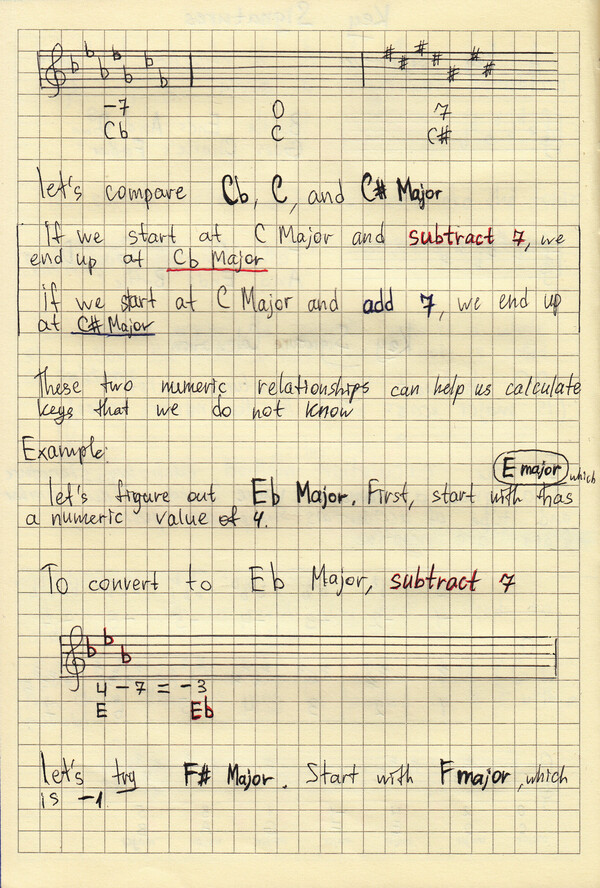 -7 0 7
Cb C C#
let's compare Cb, C, and C# Major
If we start at C Major and subtract 7, we
end up at Cb Major
if we start at C Major and add 7, we end up
at C# Major
These two numeric relationships can help us calculate
keys that we do not know
Example:
E major
let's figure out Eb Major. First, start with has which
a numeric value of 4.
To convert to Eb Major, subtract 7
4 - 7 = -3
E Eb
let's try F# Major. Start with F major, which
is -1